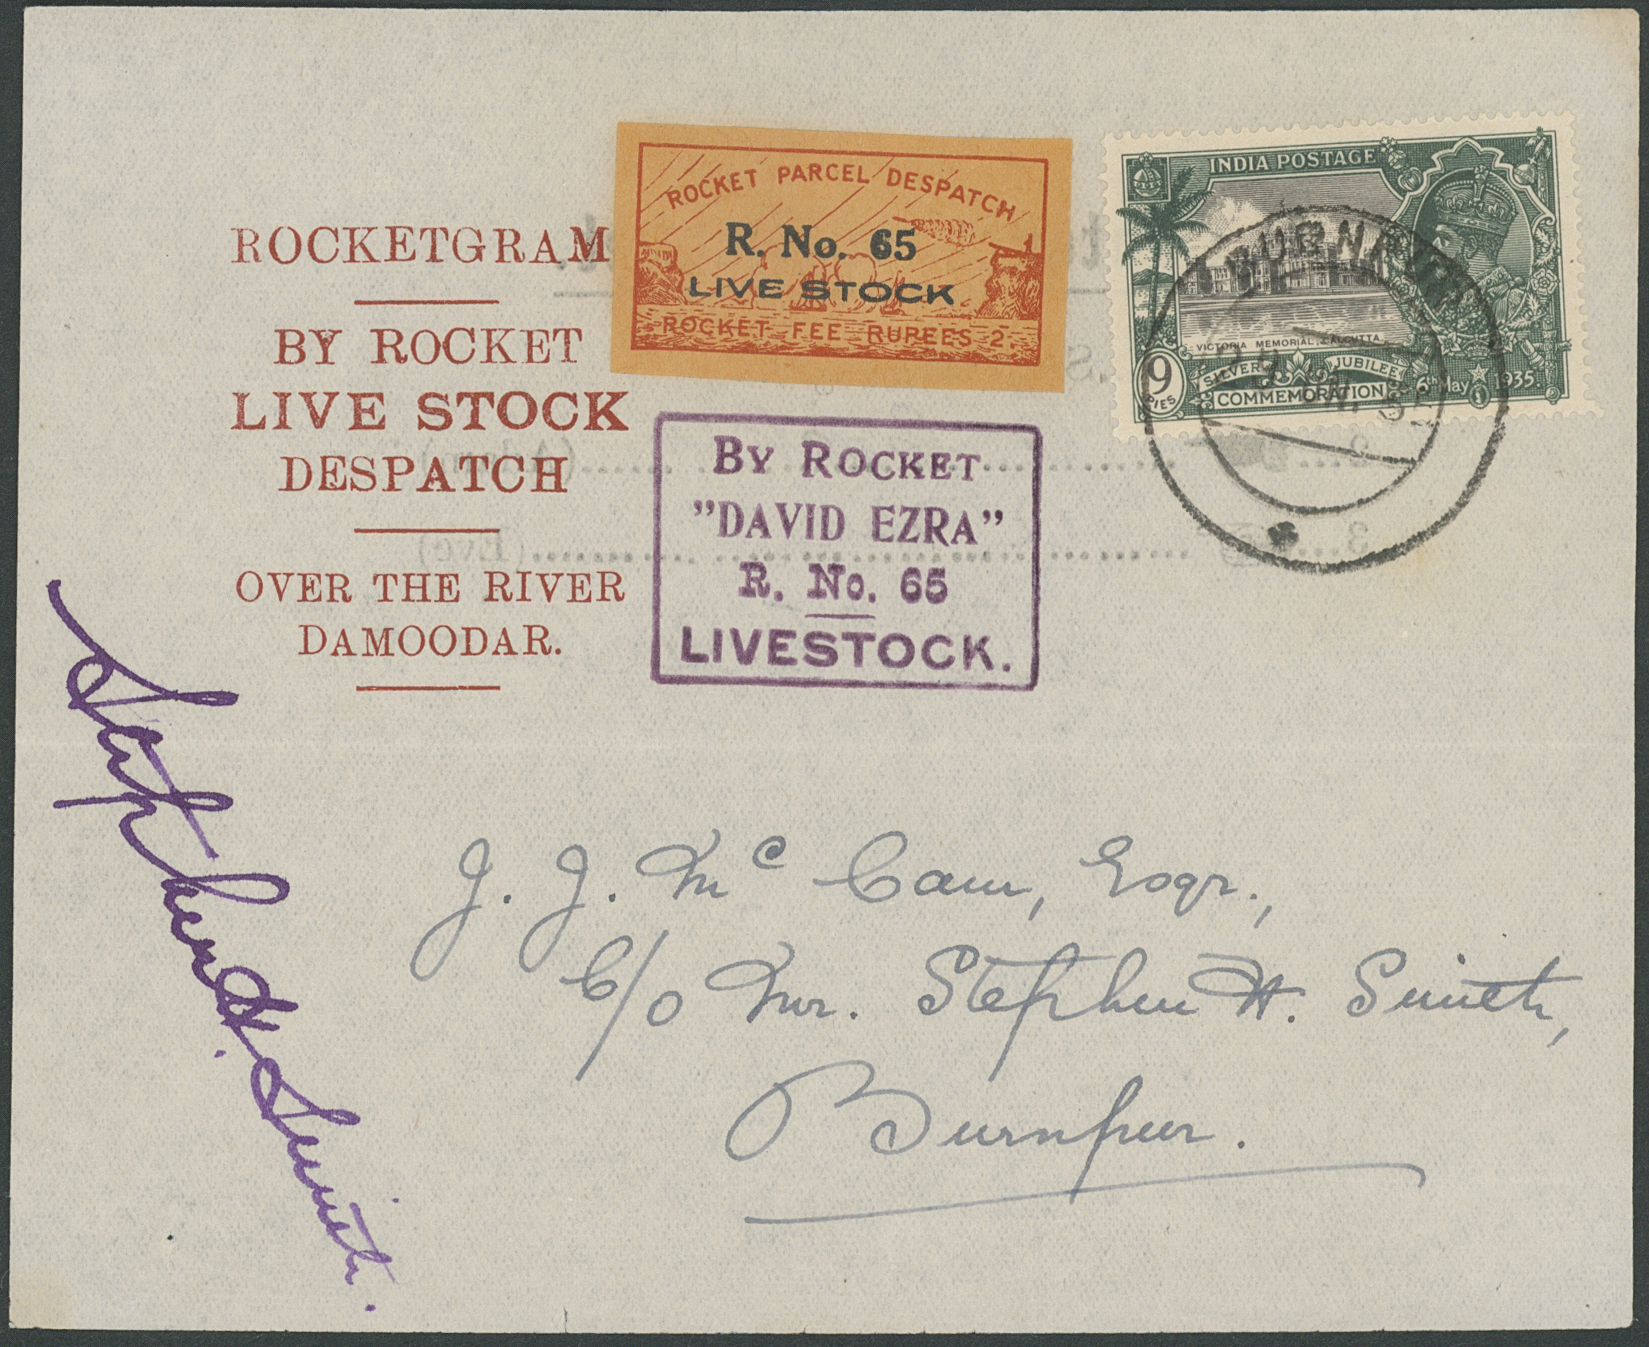 ROCKETGRAM
BY ROCKET
LIVE STOCK
DESPATCH
OVER THE RIVER
DAMOODAR.
ROCKET PARCEL DESPATCH
R. No. 65
LIVE STOCK
ROCKET FEE RUPEES 2.
INDIA POSTAGE
VICTORIA MEMORIAL, CALCUTTA
9
PIES
SILVER JUBILEE
COMMEMORATION
6th May 1935
BURNPUR
By Rocket
"DAVID EZRA"
R. No. 65
LIVESTOCK.
Stephen H. Smith.
J. J. Mc Cam, Esqr.,
C/o Mr. Stephen H. Smith,
Burnpur.